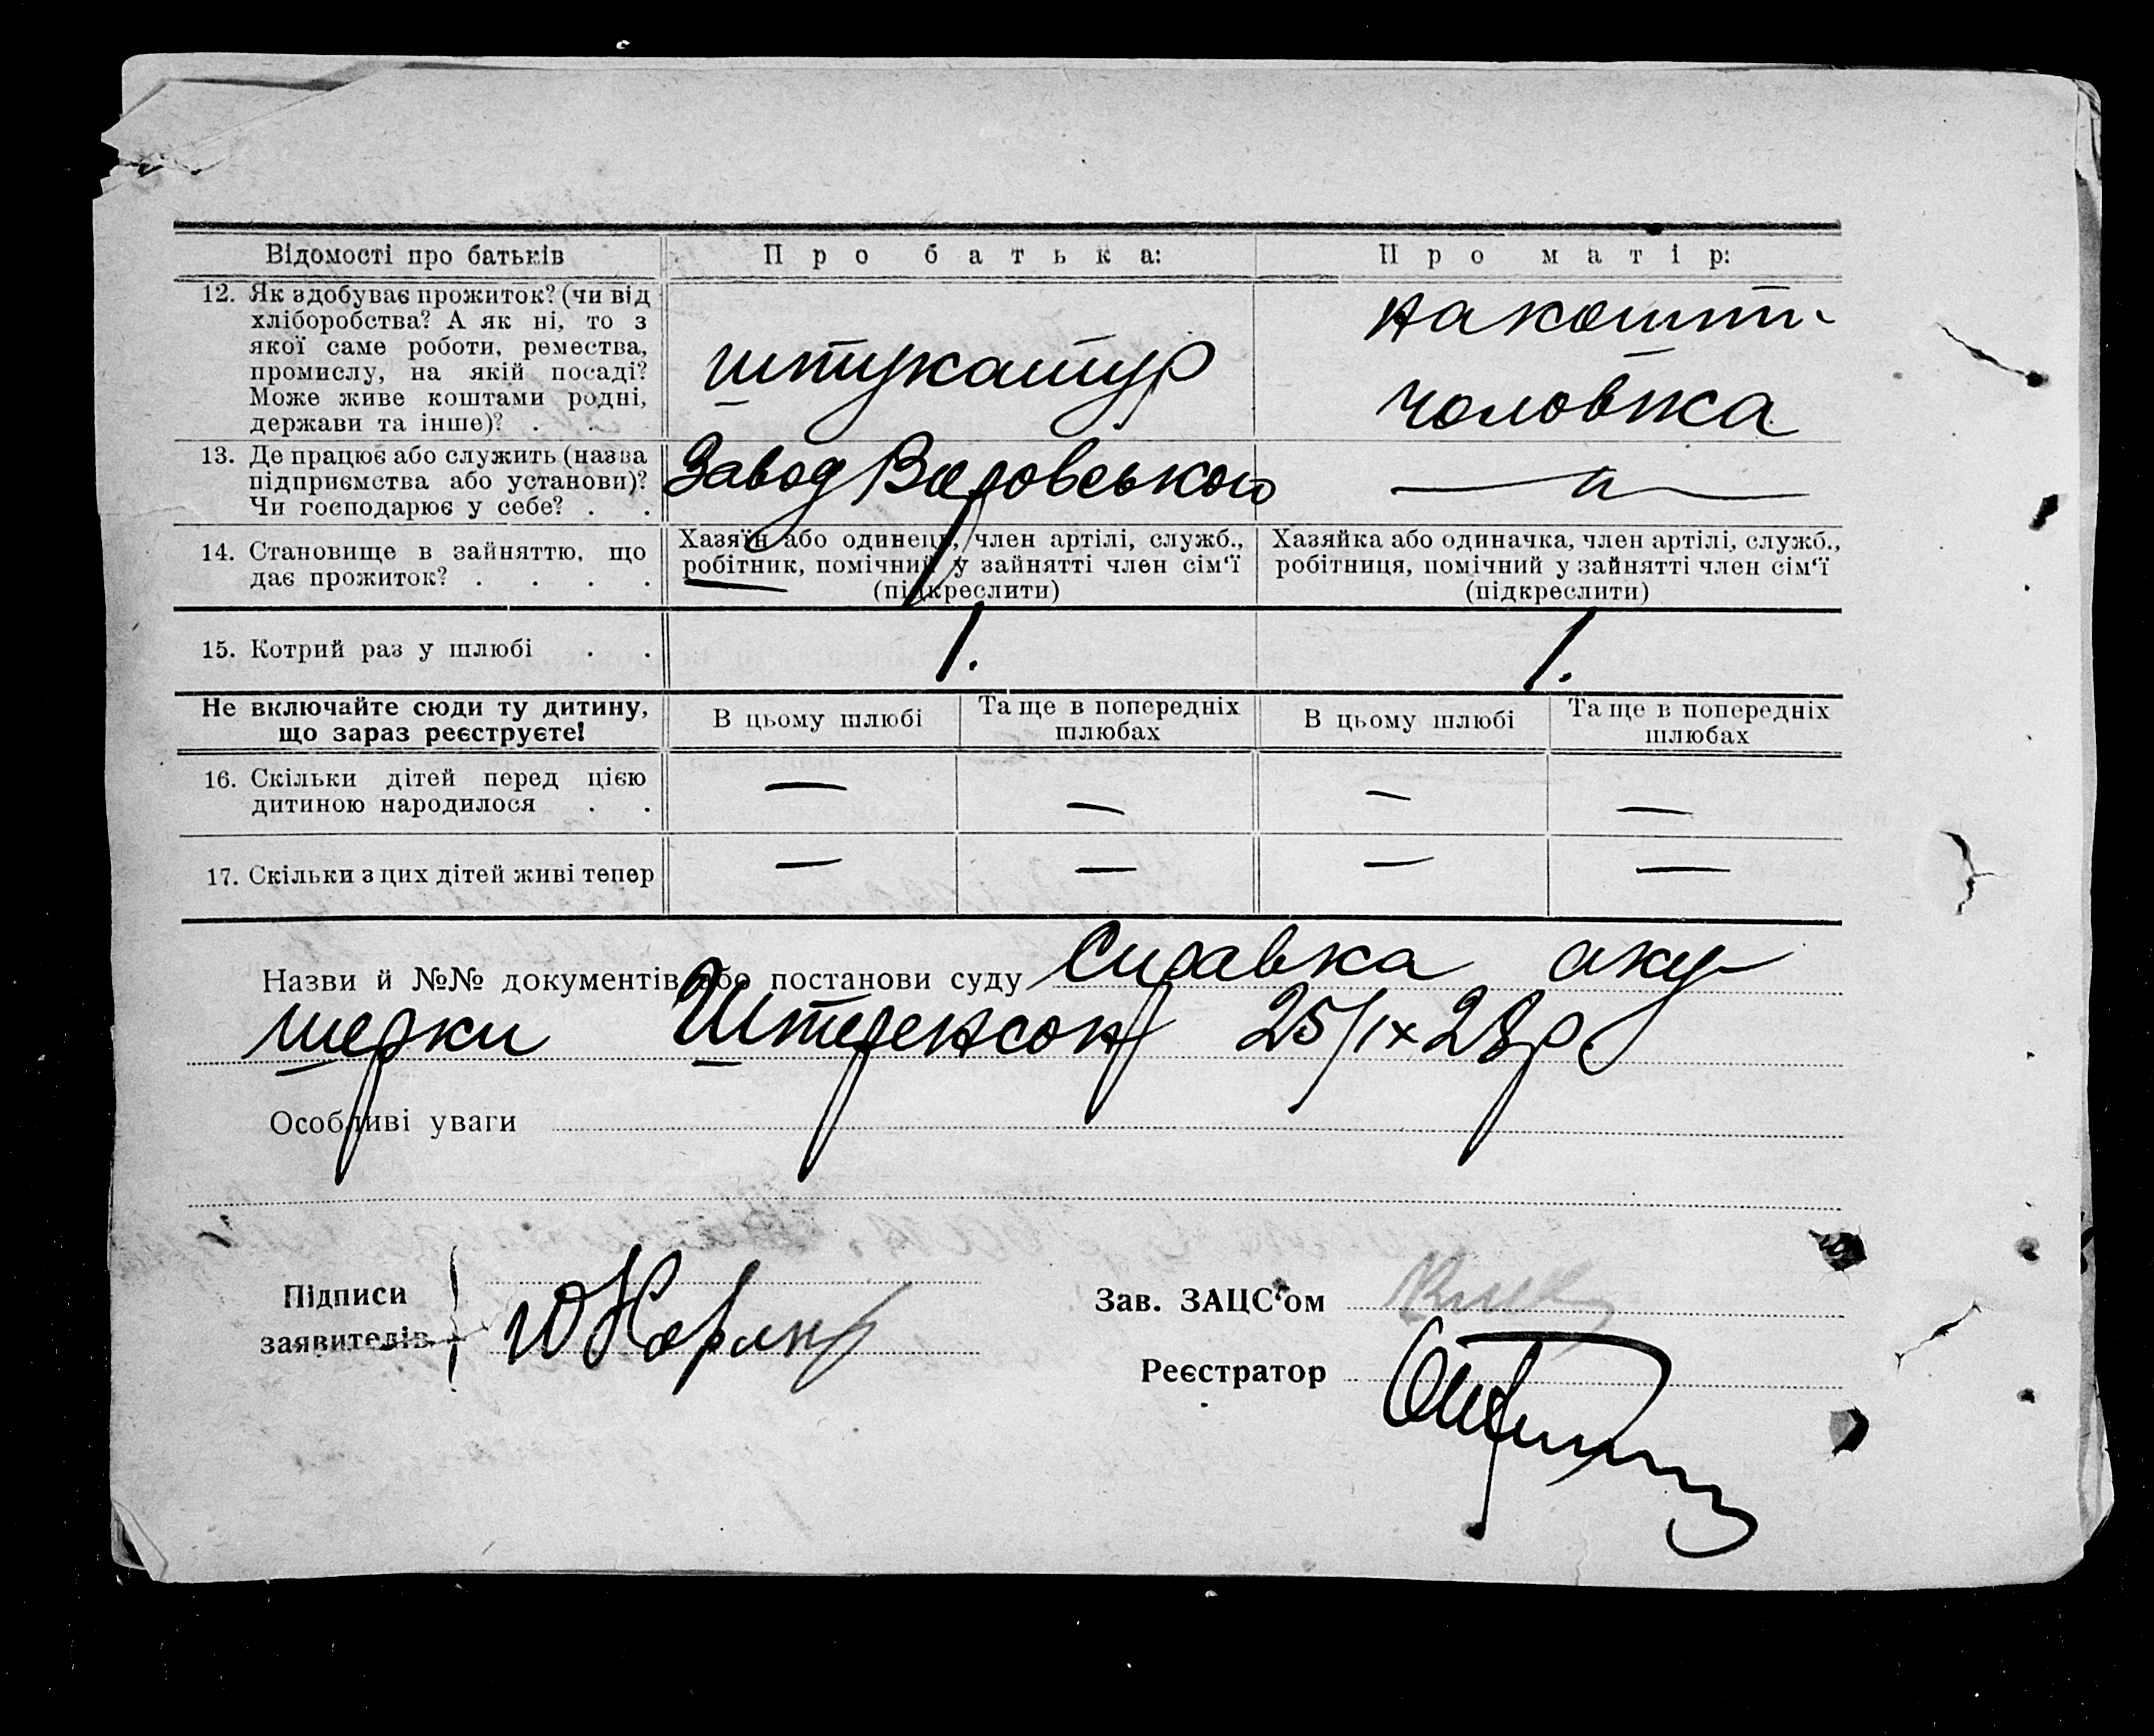 Відомості про батьків
Про батька:
Про матір:
12. Як здобуває прожиток? (чи від
хліборобства? А як ні, то з
якої саме роботи, ремества,
промислу, на якій посаді?
Може живе коштами родні,
держави та інше)? . .
штукатур
на кошти
чоловіка
13. Де працює або служить (назва
підприємства або установи)?
Чи господарює у себе? . .
Завод
— " —
14. Становище в зайняттю, що
дає прожиток? . . . .
Хазяїн або одинець, член артілі, служб.,
робітник, помічний у зайнятті член сім'ї
(підкреслити)
Хазяйка або одиначка, член артілі, служб.,
робітниця, помічний у зайнятті член сім'ї
(підкреслити)
15. Котрий раз у шлюбі . .
1.
1.
Не включайте сюди ту дитину,
що зараз реєструєте!
В цьому шлюбі
Та ще в попередніх
шлюбах
В цьому шлюбі
Та ще в попередніх
шлюбах
16. Скільки дітей перед цією
дитиною народилося . .
— — — —
17. Скільки з цих дітей живі тепер
— — — —
Назви й №№ документів або постанови суду Справка аку-
шерки Штеренсон 25/IX 28 р.
Особливі уваги
Підписи
заявителів
Зав. ЗАЦС'ом
Реєстратор